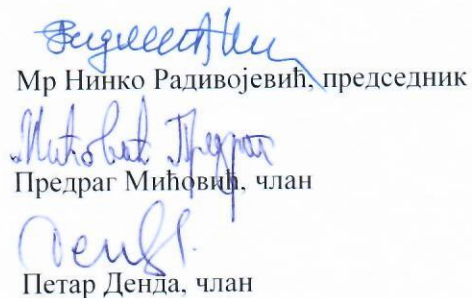 Мр Нинко Радивојевић, председник
Мићовић Предраг
Предраг Мићовић, члан
Петар Денда, члан